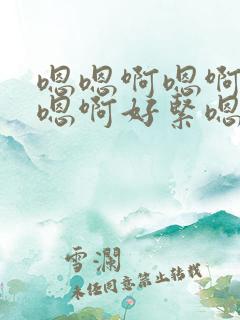 嗯嗯啊嗯啊
嗯啊好緊嗯
雪瀾
未任同意禁止转载